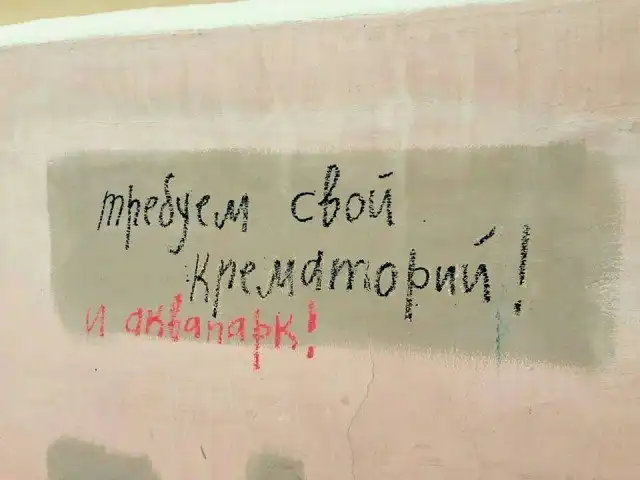 требуем свой
крематорий!
и аквапарк!